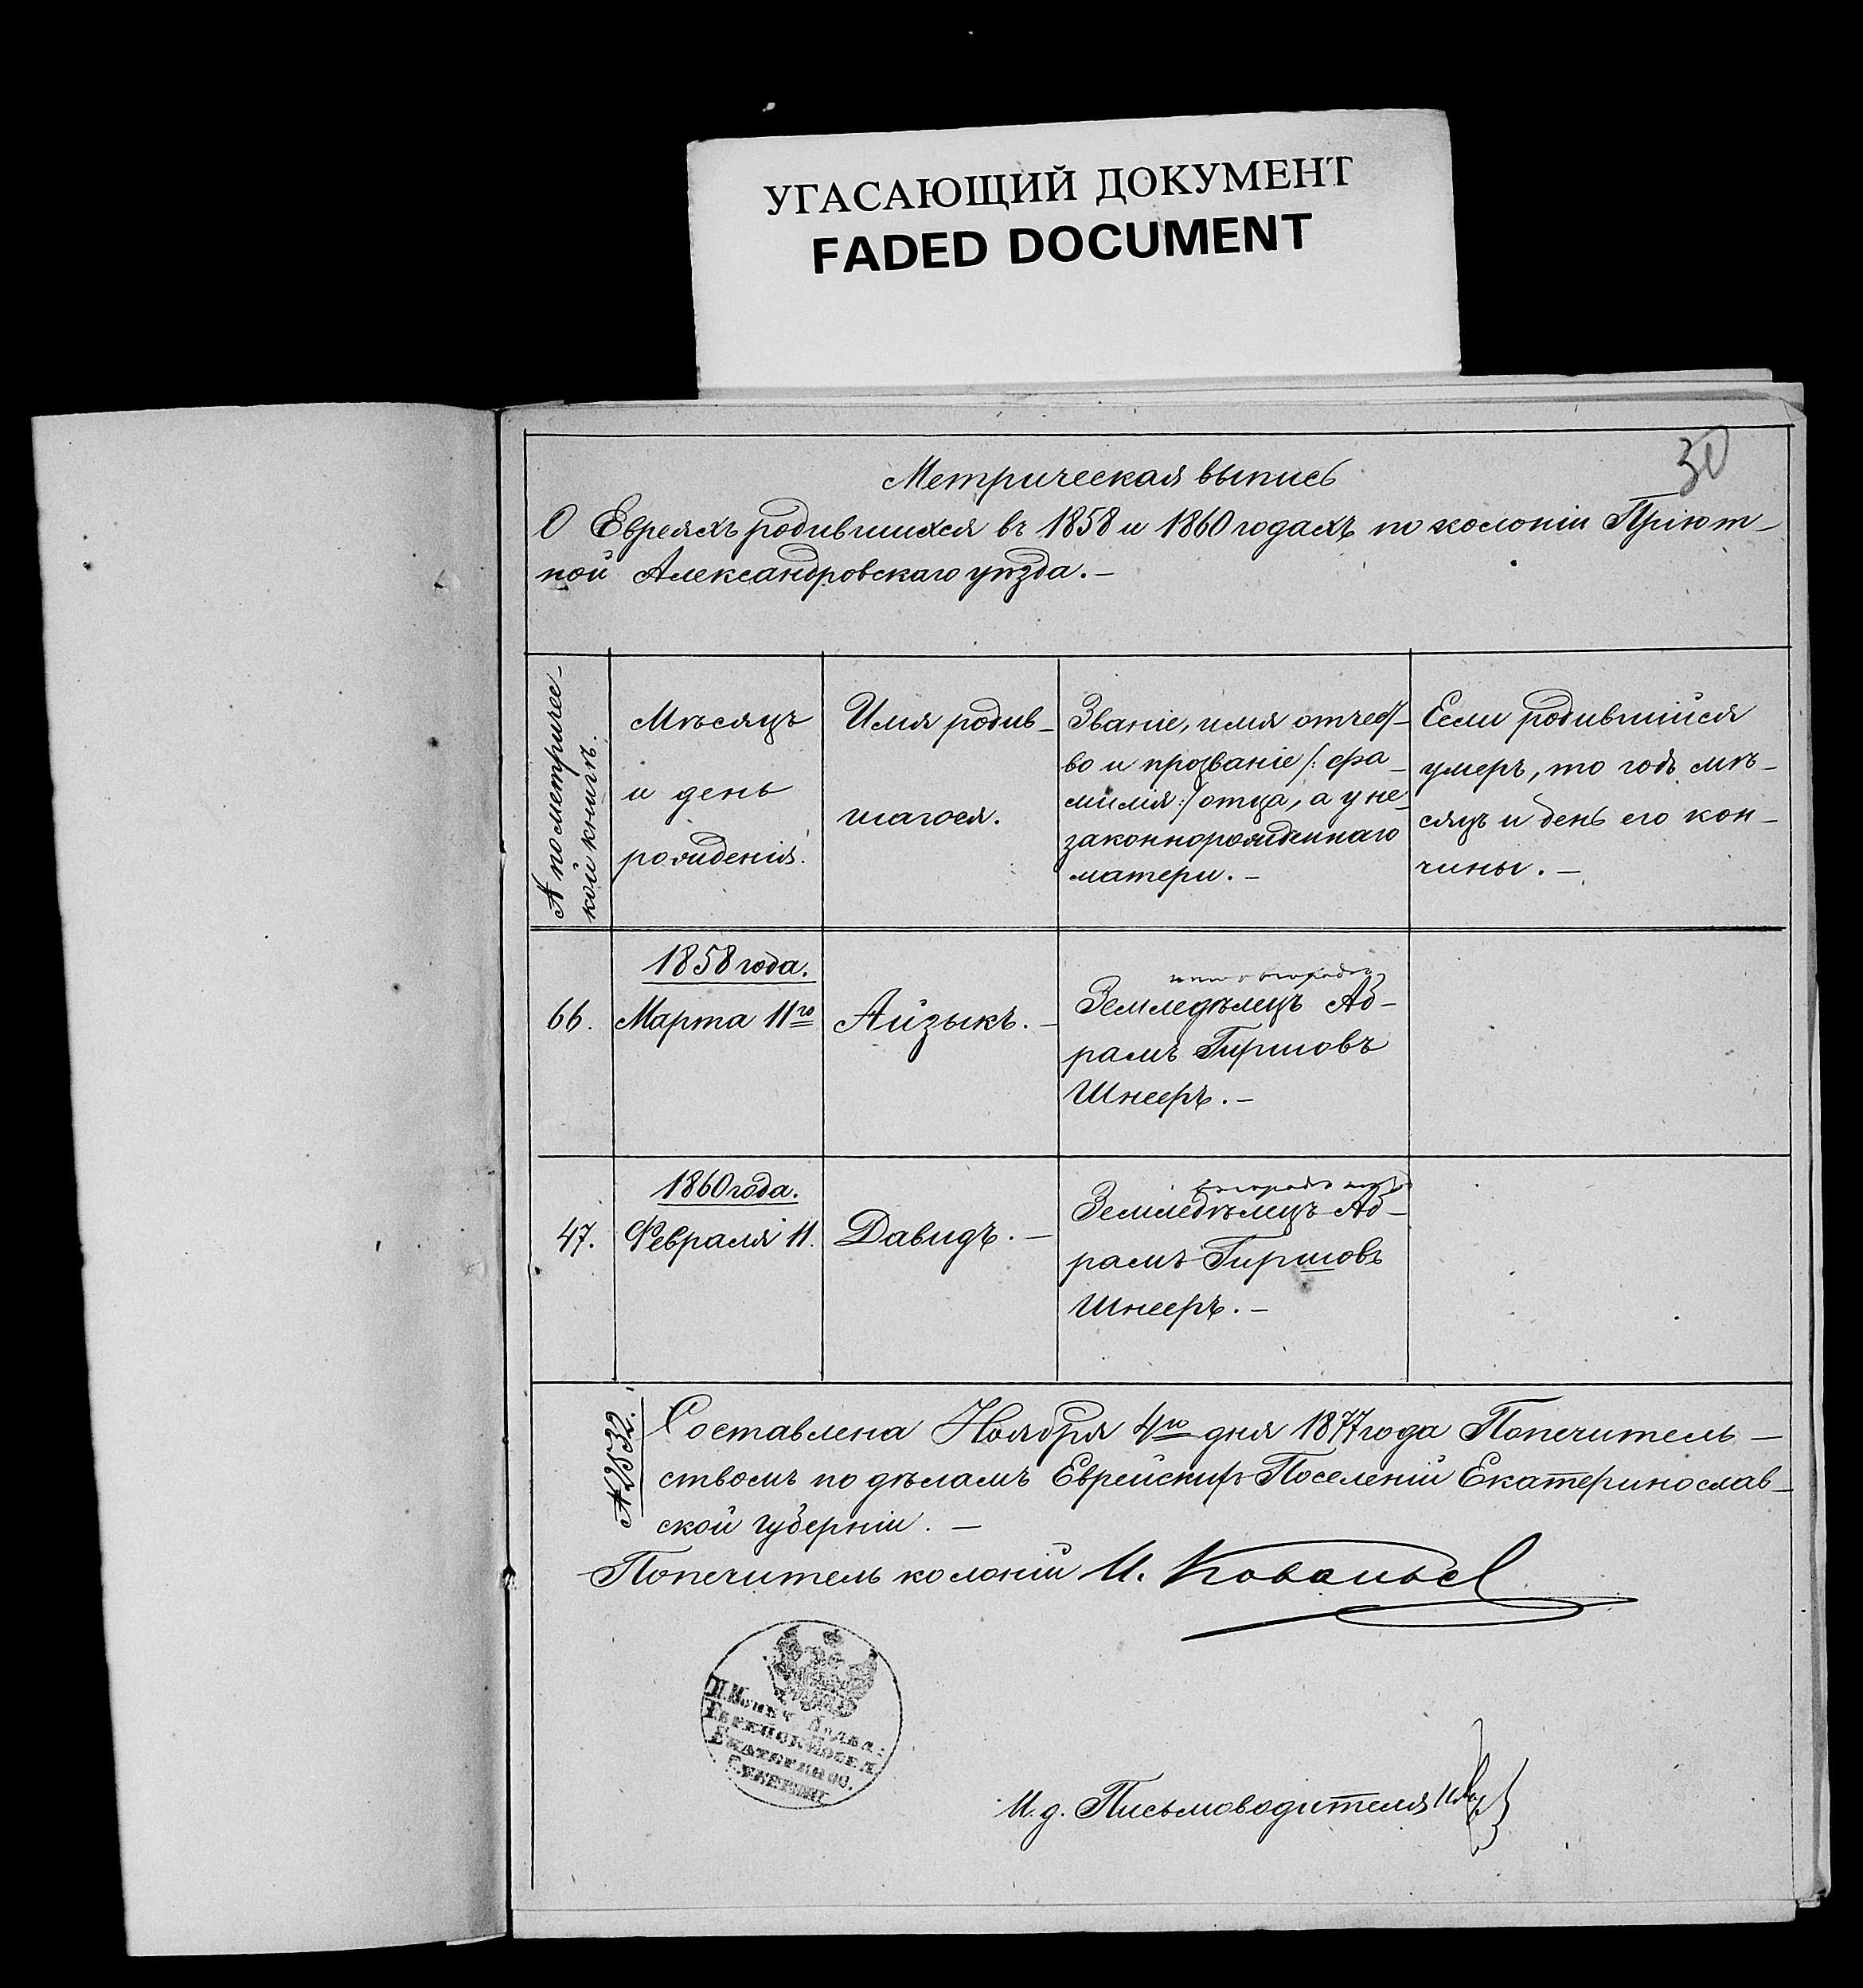 УГАСАЮЩИЙ ДОКУМЕНТ
FADED DOCUMENT
30
Метрическая выпись
О Евреяхъ родившихся въ 1858 и 1860 годахъ по колоніи Пріют-
ной Александровскаго уѣзда. —
№ по метричес-
кой книгѣ.
Мѣсяцъ
и день
рожденія.
Имя родив-
шагося.
Званіе, имя отчест-
во и прозваніе /: фа-
милія :/ отца, а у не-
законнорожденнаго
матери. —
Если родившійся
умеръ, то годъ мѣ-
сяцъ и день его кон-
чины. —
66.
1858 года.
Марта 11го
Айзыкъ. —
Земледѣлецъ Аб-
рамъ Гиршовъ
Шнееръ. —
47.
1860 года.
Февраля 11.
Давидъ. —
Земледѣлецъ Аб-
рамъ Гиршовъ
Шнееръ. —
№ 2532.
Составлена Ноября 4го дня 1877 года Попечитель-
ствомъ по дѣламъ Еврейскихъ Поселеній Екатеринослав-
ской губерніи. —
Попечитель колоній И.
И. д. Письмоводителя